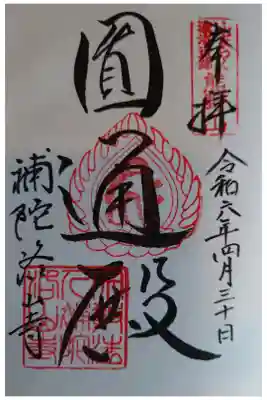 奉拝
令和六年四月三十日
圓通殿
補陀洛山寺